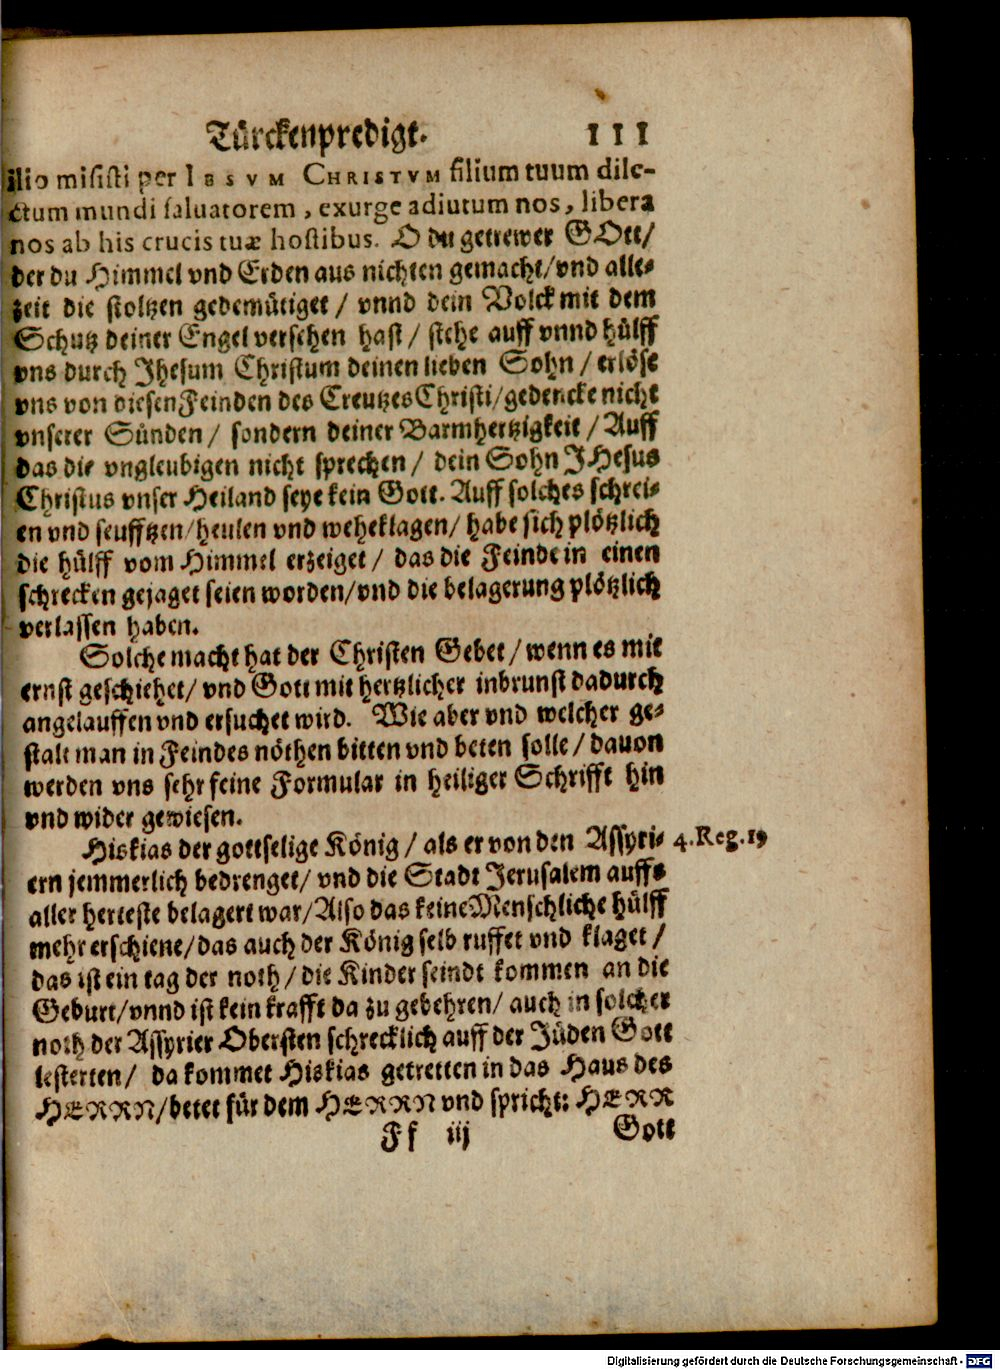 Türckenpredigt. 111
ilio misisti per IESVM CHRISTVM filium tuum dile-
ctum mundi saluatorem, exurge adiutum nos, libera
nos ab his crucis tuæ hostibus. O du getrewer GOtt/
der du Himmel vnd Erden aus nichten gemacht/vnd alle-
zeit die stoltzen gedemütiget / vnnd dein Volck mit dem
Schutz deiner Engel versehen hast / stehe auff vnnd hülff
vns durch Jhesum Christum deinen lieben Sohn / erlöse
vns von diesen Feinden des Creutzes Christi/gedencke nicht
vnserer Sünden / sondern deiner Barmhertzigkeit / Auff
das die vngleubigen nicht sprechen / dein Sohn JHesus
Christus vnser Heiland seye kein Gott. Auff solches schrei-
en vnd seufftzen/heulen vnd weheklagen/ habe sich plötzlich
die hülff vom Himmel erzeiget / das die Feinde in einen
schrecken gejaget seien worden/vnd die belagerung plötzlich
verlassen haben.
Solche macht hat der Christen Gebet / wenn es mit
ernst geschiehet/ vnd Gott mit hertzlicher inbrunst dadurch
angelauffen vnd ersuchet wird. Wie aber vnd welcher ge-
stalt man in Feindes nöthen bitten vnd beten solle / dauon
werden vns sehr feine Formular in heiliger Schrifft hin
vnd wider gewiesen.
Hiskias der gottselige König / als er von den Assyri- 4.Reg.19
ern jemmerlich bedrenget/ vnd die Stadt Jerusalem auffs
aller herteste belagert war/Also das keine Menschliche hülff
mehr erschiene/das auch der König selb ruffet vnd klaget /
das ist ein tag der noth / die Kinder seindt kommen an die
Geburt/vnnd ist kein krafft da zu gebehren/ auch in solcher
noth der Assyrier Obersten schrecklich auff der Jüden Gott
lesterten/ da kommet Hiskias getretten in das Haus des
HERRN/betet für dem HERRN vnd spricht: HERR
Ff iij Gott
Digitalisierung gefördert durch die Deutsche Forschungsgemeinschaft - DFG